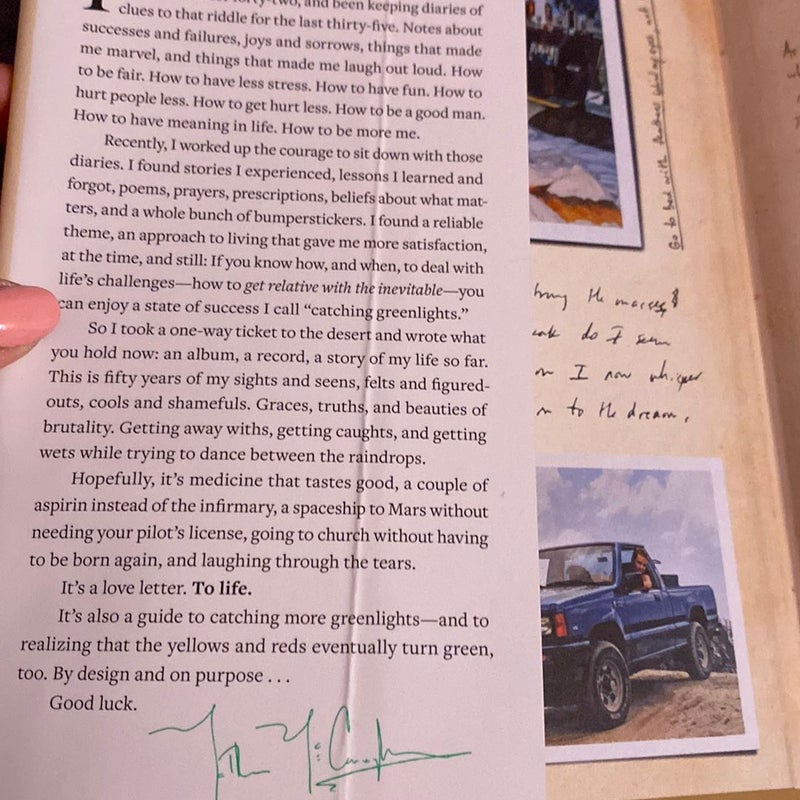 forty-two, and been keeping diaries of
clues to that riddle for the last thirty-five. Notes about
successes and failures, joys and sorrows, things that made
me marvel, and things that made me laugh out loud. How
to be fair. How to have less stress. How to have fun. How to
hurt people less. How to get hurt less. How to be a good man.
How to have meaning in life. How to be more me.
Recently, I worked up the courage to sit down with those
diaries. I found stories I experienced, lessons I learned and
forgot, poems, prayers, prescriptions, beliefs about what mat-
ters, and a whole bunch of bumperstickers. I found a reliable
theme, an approach to living that gave me more satisfaction,
at the time, and still: If you know how, and when, to deal with
life's challenges—how to get relative with the inevitable—you
can enjoy a state of success I call “catching greenlights.”
So I took a one-way ticket to the desert and wrote what
you hold now: an album, a record, a story of my life so far.
This is fifty years of my sights and seens, felts and figured-
outs, cools and shamefuls. Graces, truths, and beauties of
brutality. Getting away withs, getting caughts, and getting
wets while trying to dance between the raindrops.
Hopefully, it's medicine that tastes good, a couple of
aspirin instead of the infirmary, a spaceship to Mars without
needing your pilot's license, going to church without having
to be born again, and laughing through the tears.
It's a love letter. To life.
It's also a guide to catching more greenlights—and to
realizing that the yellows and reds eventually turn green,
too. By design and on purpose . . .
Good luck.
Go to bed with
the
do I seem
I now whisper
to the dream.